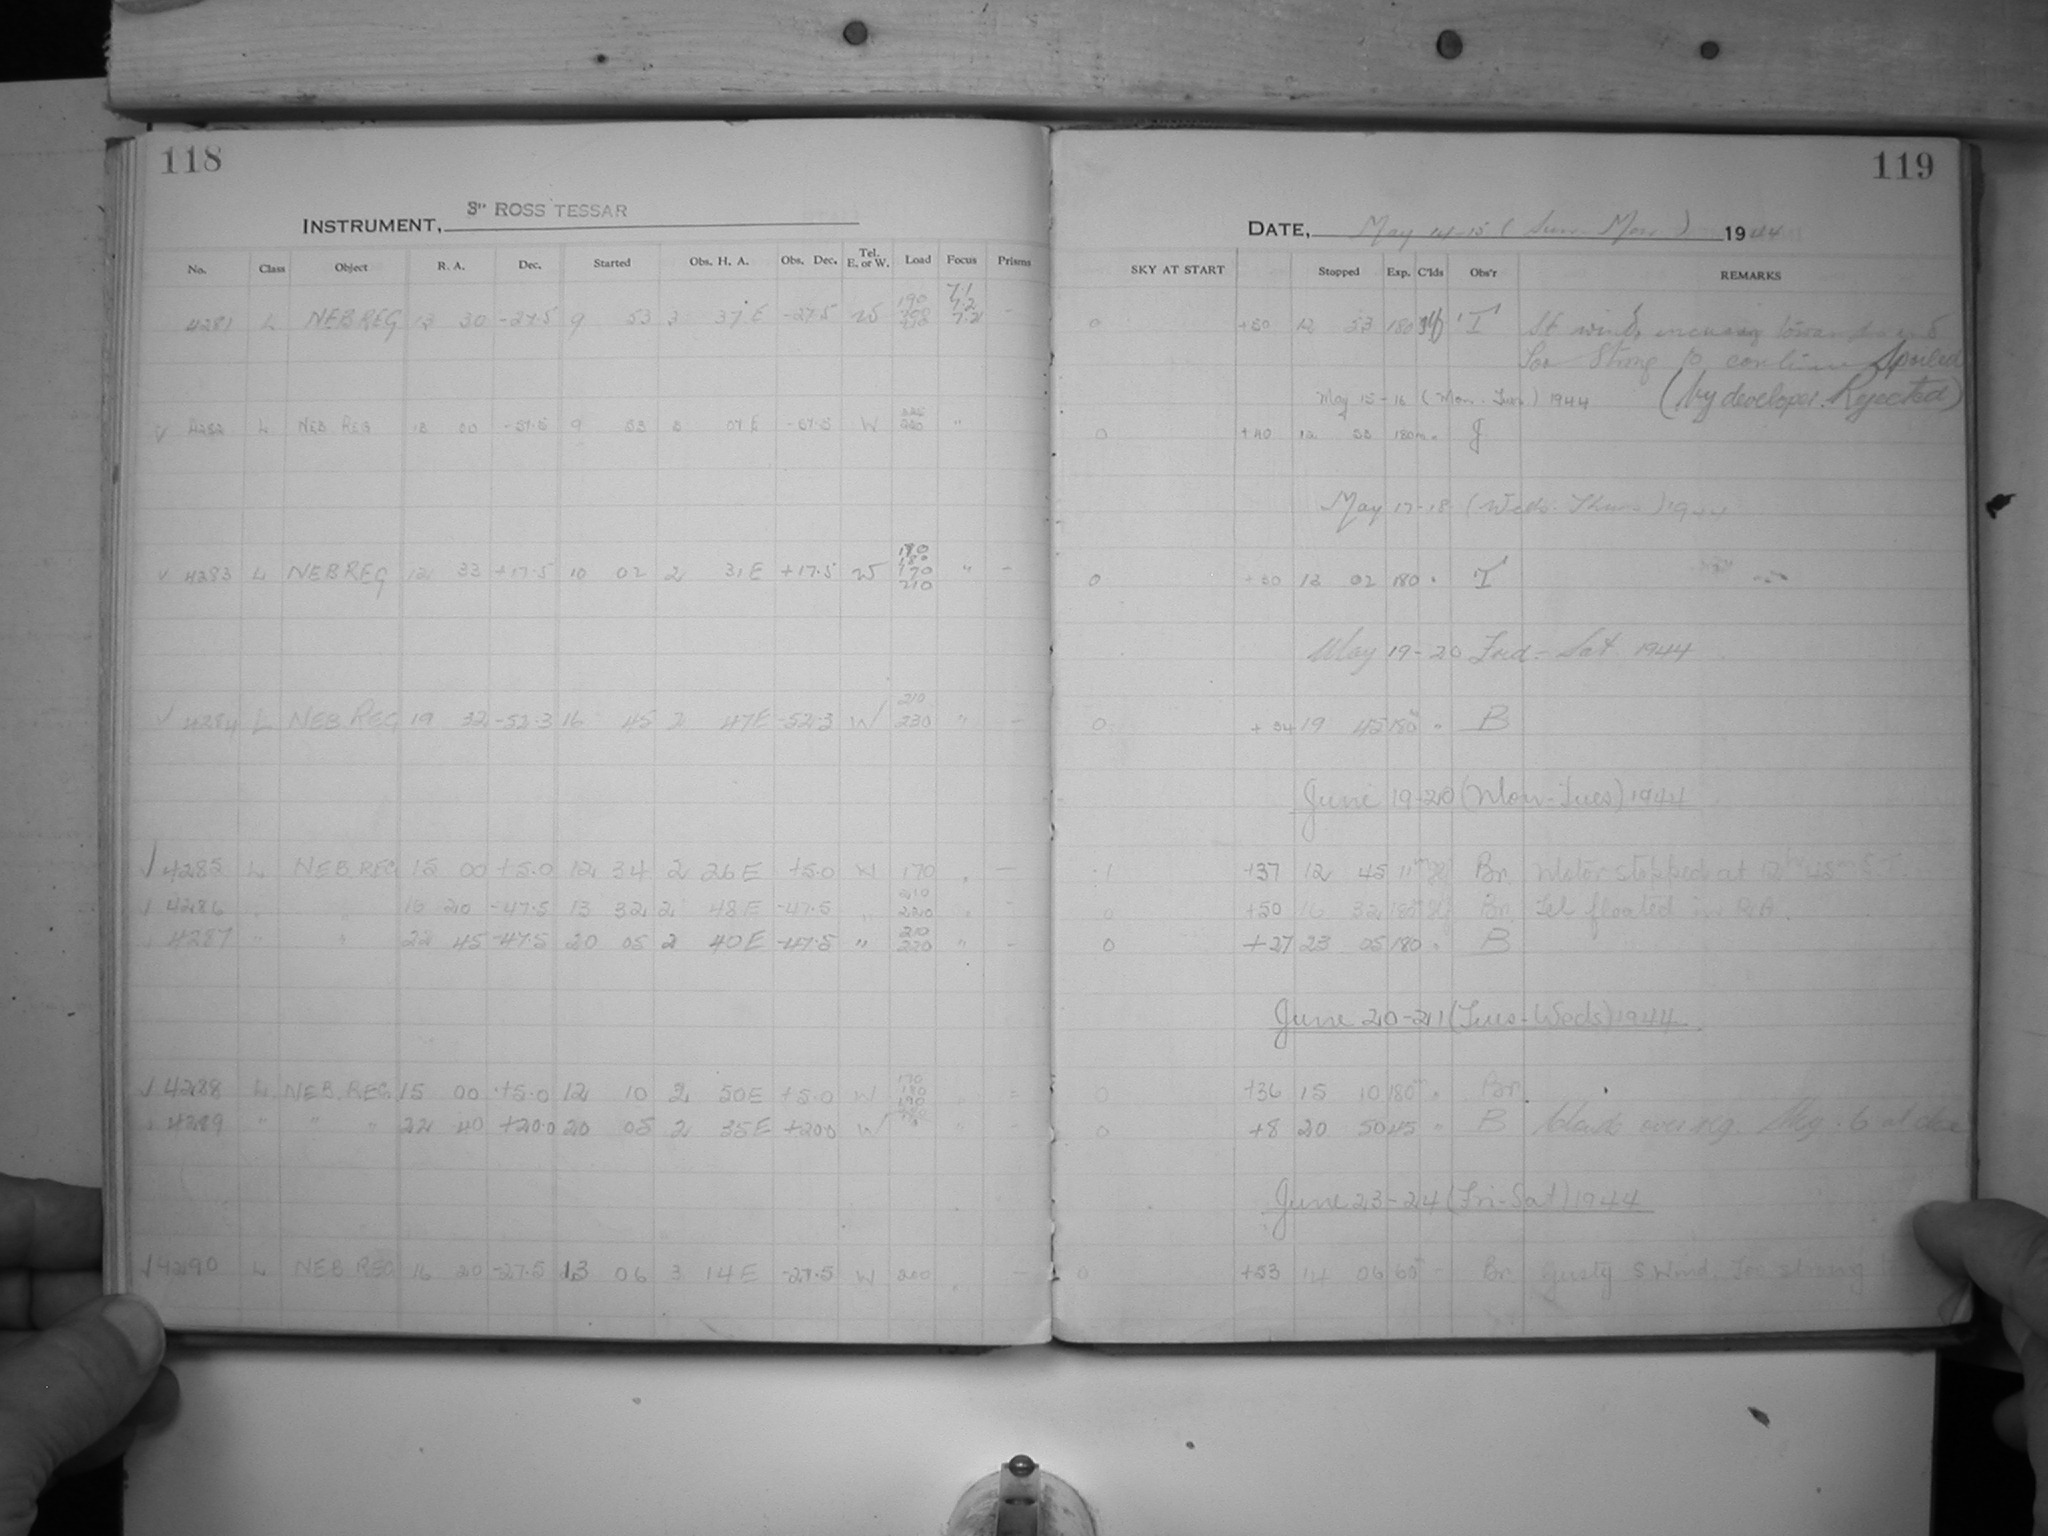 118
INSTRUMENT, 3" ROSS TESSAR
No. Class Object R. A. Dec. Started Obs. H. A. Obs. Dec. Tel. E. or W. Load Focus Prisms
4281 L NEB REG 13 30 -27.5 9 53 3 37 E -27.5 W 190 7.1 7.2 -
√ 4282 L NEB REG W 220 "
√ 4283 L NEB REG 12 33 +17.5 10 02 2 31 E +17.5 W 170 210 " -
√ 4284 L NEB REG 19 32 -52.3 16 45 2 47 E -52.3 W 210 230 " -
√ 4285 L NEB REG 15 00 +5.0 12 34 2 26 E +5.0 W 170 -
√ 4286 16 20 -47.5 13 32 2 48 E -47.5 " 210 220 -
4287 " " 22 45 -47.5 20 05 2 40 E -47.5 " 210 220 " -
√ 4288 L NEB. REG 15 00 +5.0 12 10 2 50 E +5.0 W 170 180 190
4289 " " " 22 40 +20.0 20 05 2 35 E +20.0 W " -
√ 4290 L NEB REG 16 20 -27.5 13 06 3 14 E -27.5 W 200 -
119
DATE, May 14-15 (Sun-Mon) 1944
SKY AT START Stopped Exp. C'lds Obs'r REMARKS
0 +50 12 53 180 T St wind, increasing towards end
Too Strong to continue Spoiled
May 15-16 (Mon-Tues) 1944 (by developer. Rejected)
0 +40 12 180 J
May 17-18 (Weds-Thurs) 1944
0 +30 13 02 180 " T
May 19-20 Frid-Sat 1944
0 +34 19 45 180 " B
June 19-20 (Mon-Tues) 1944
1 +37 12 45 11 Br. Motor stopped at 12 45
0 +50 16 32 180 Br. Tel floated in R.A.
0 +27 23 05 180 " B
June 20-21 (Tues-Weds) 1944
0 +36 15 10 180 " Br.
0 +8 20 50 45 " B Clouds over reg. Sky
June 23-24 (Fri-Sat) 1944
0 +53 14 06 60 - Br Gusty S Wind. Too strong